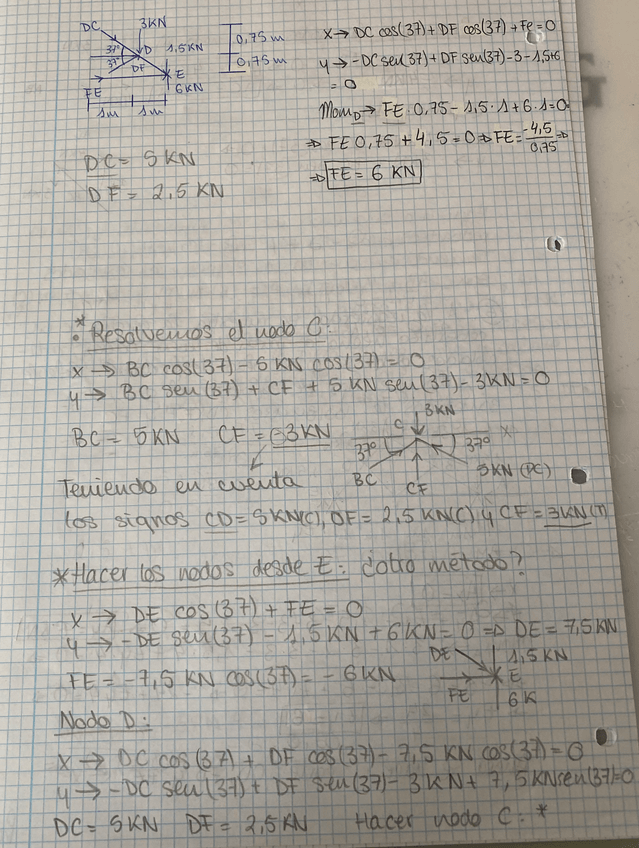 DC 3KN
37° D 1,5KN 0,75 m
37° DF 0,75 m
E
FE 6KN
1m 1m
DC = 5 KN
DF = 2,5 KN
x → DC cos(37) + DF cos(37) + Fe = 0
y → -DC sen(37) + DF sen(37) - 3 - 1,5+6
= 0
Mom_D → FE · 0,75 - 1,5 · 1 + 6 · 1 = 0
⇒ FE 0,75 + 4,5 = 0 ⇒ FE = -4,5/0,75 ⇒
⇒ FE = 6 KN
* Resolvemos el nodo C:
x → BC cos(37) - 5 KN cos(37) = 0
y → BC sen(37) + CF + 5 KN sen(37) - 3KN = 0
BC = 5KN CF = -3KN
C 3KN
37° 37° x
BC CF 5KN (DC)
Teniendo en cuenta
los signos CD = 5KN(C), DF = 2,5KN(C) y CF = 3KN(T)
* Hacer los nodos desde E: ¿otro método?
x → DE cos(37) + FE = 0
y → -DE sen(37) - 1,5KN + 6KN = 0 ⇒ DE = 7,5KN
FE = -7,5 KN cos(37) = -6KN
DE 1,5 KN
E
FE 6K
Nodo D:
x → DC cos(37) + DF cos(37) - 7,5 KN cos(37) = 0
y → -DC sen(37) + DF sen(37) - 3KN + 7,5KNsen(37)=0
DC = 5KN DF = 2,5KN Hacer nodo C: *